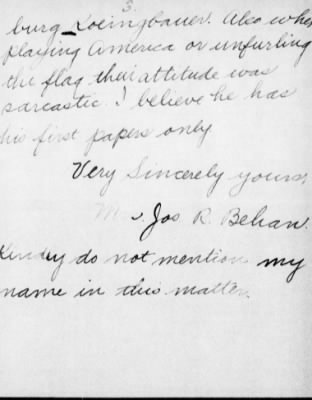 3.
burg Loeingbauer. Also when
playing America or unfurling
the flag their attitude was
sarcastic. I believe he has
his first papers only
Very Sincerely yours,
Jos R. Behan.
Kindly do not mention my
name in this matter.